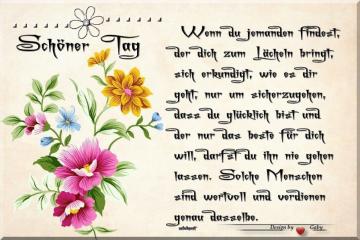 Schöner Tag
Wenn du jemanden findest,
der dich zum Lächeln bringt,
sich erkundigt, wie es dir
geht, nur um sicherzugehen,
dass du glücklich bist und
der nur das beste für dich
will, darfst du ihn nie gehen
lassen. Solche Menschen
sind wertvoll und verdienen
genau dasselbe.
Design by Gaby